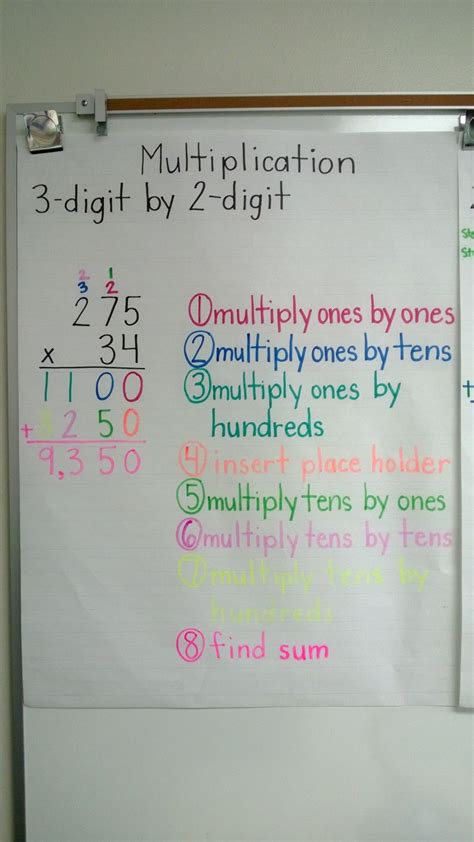 Multiplication
3-digit by 2-digit
2 1
3 2
275
x 34
1100
+8250
9,350
①multiply ones by ones
②multiply ones by tens
③multiply ones by
hundreds
④ insert place holder
⑤multiply tens by ones
⑥multiply tens by tens
⑦multiply tens by
hundreds
⑧find sum